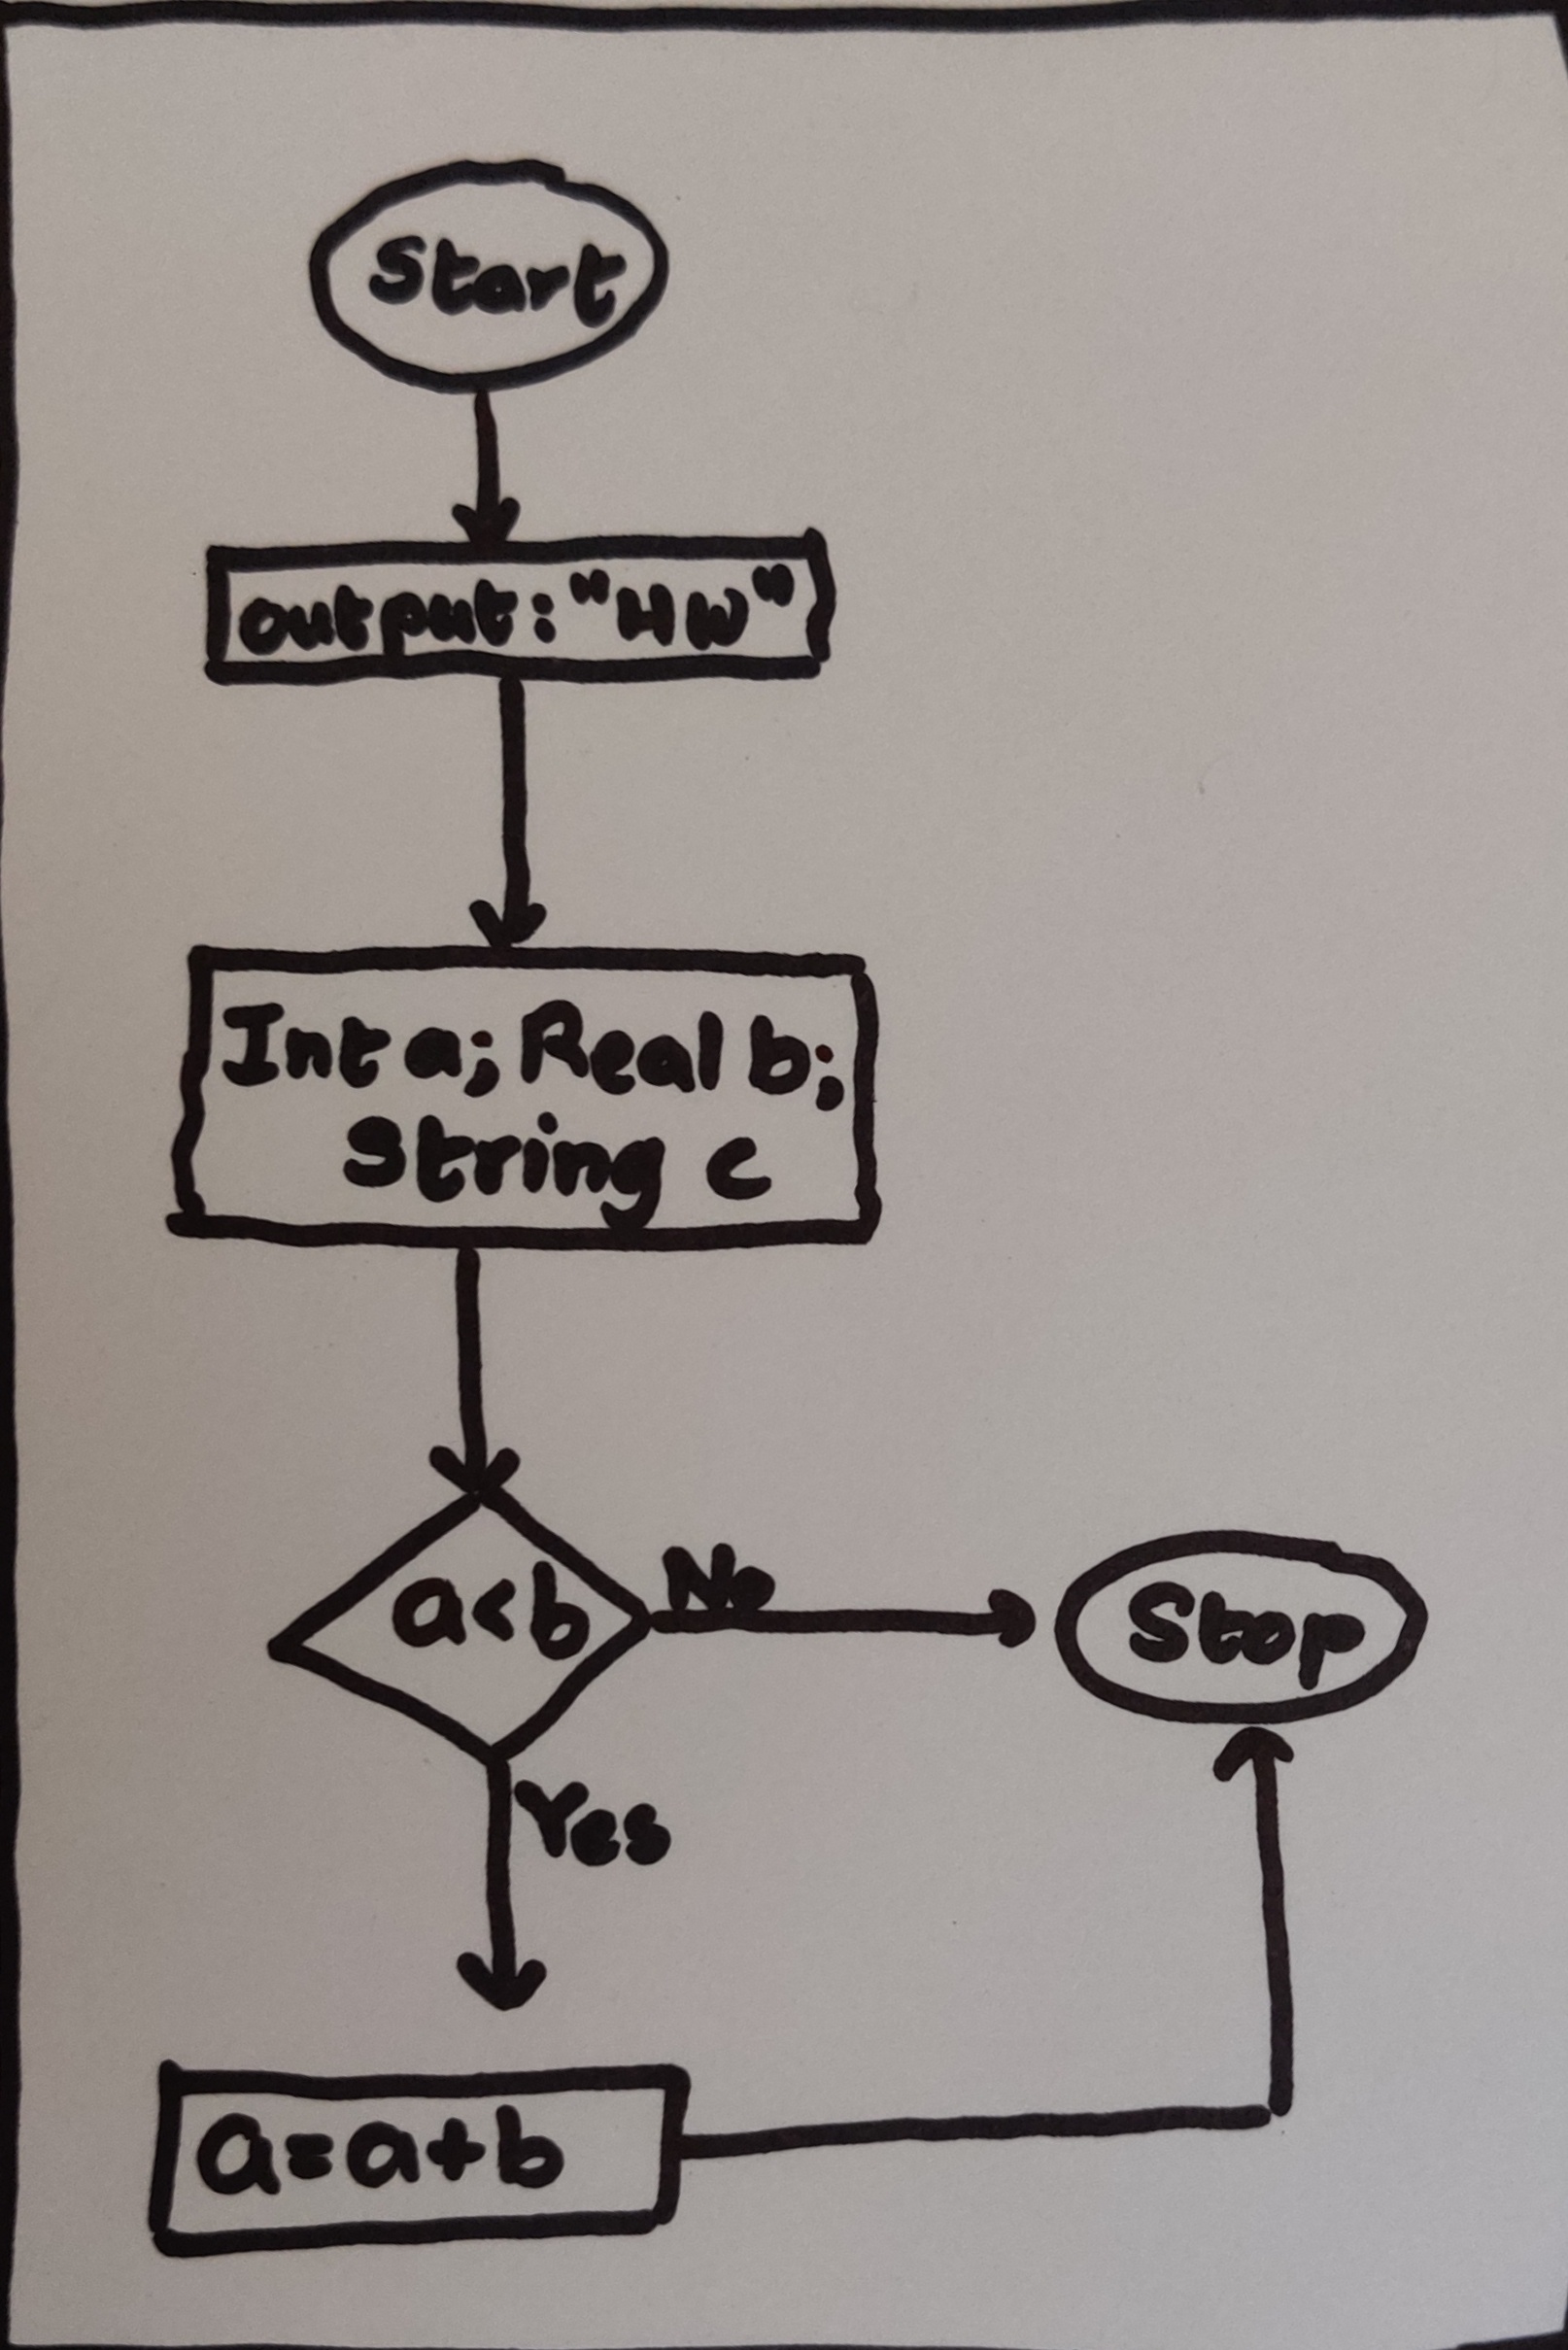 Start
output: "HW"
Int a; Real b;
String c
a<b
No
Stop
Yes
a=a+b